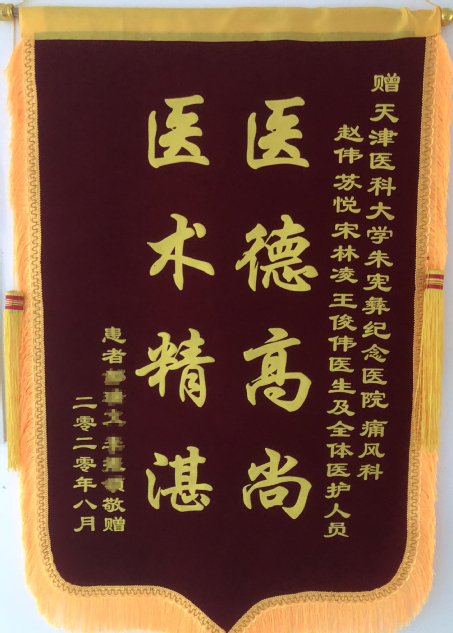 赠 天津医科大学朱宪彝纪念医院 痛风科
赵伟 苏悦 宋林凌 王俊伟医生及全体医护人员
医德高尚
医术精湛
患者 敬赠
二零二零年八月